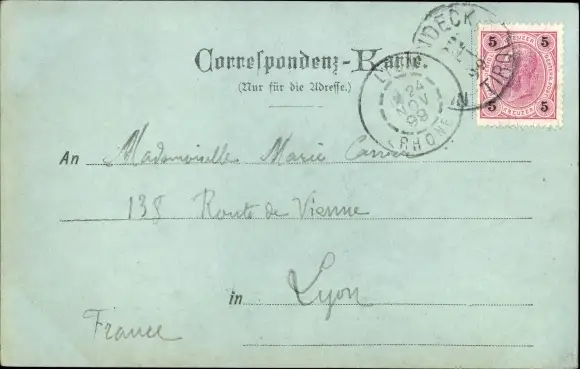 Correspondenz-Karte.
(Nur für die Adresse.)
5 5
KREUZER
5 5
24
NOV
99
RHONE
TIROL
An Mademoiselle Marie
138 Route de Vienne
in Lyon
France